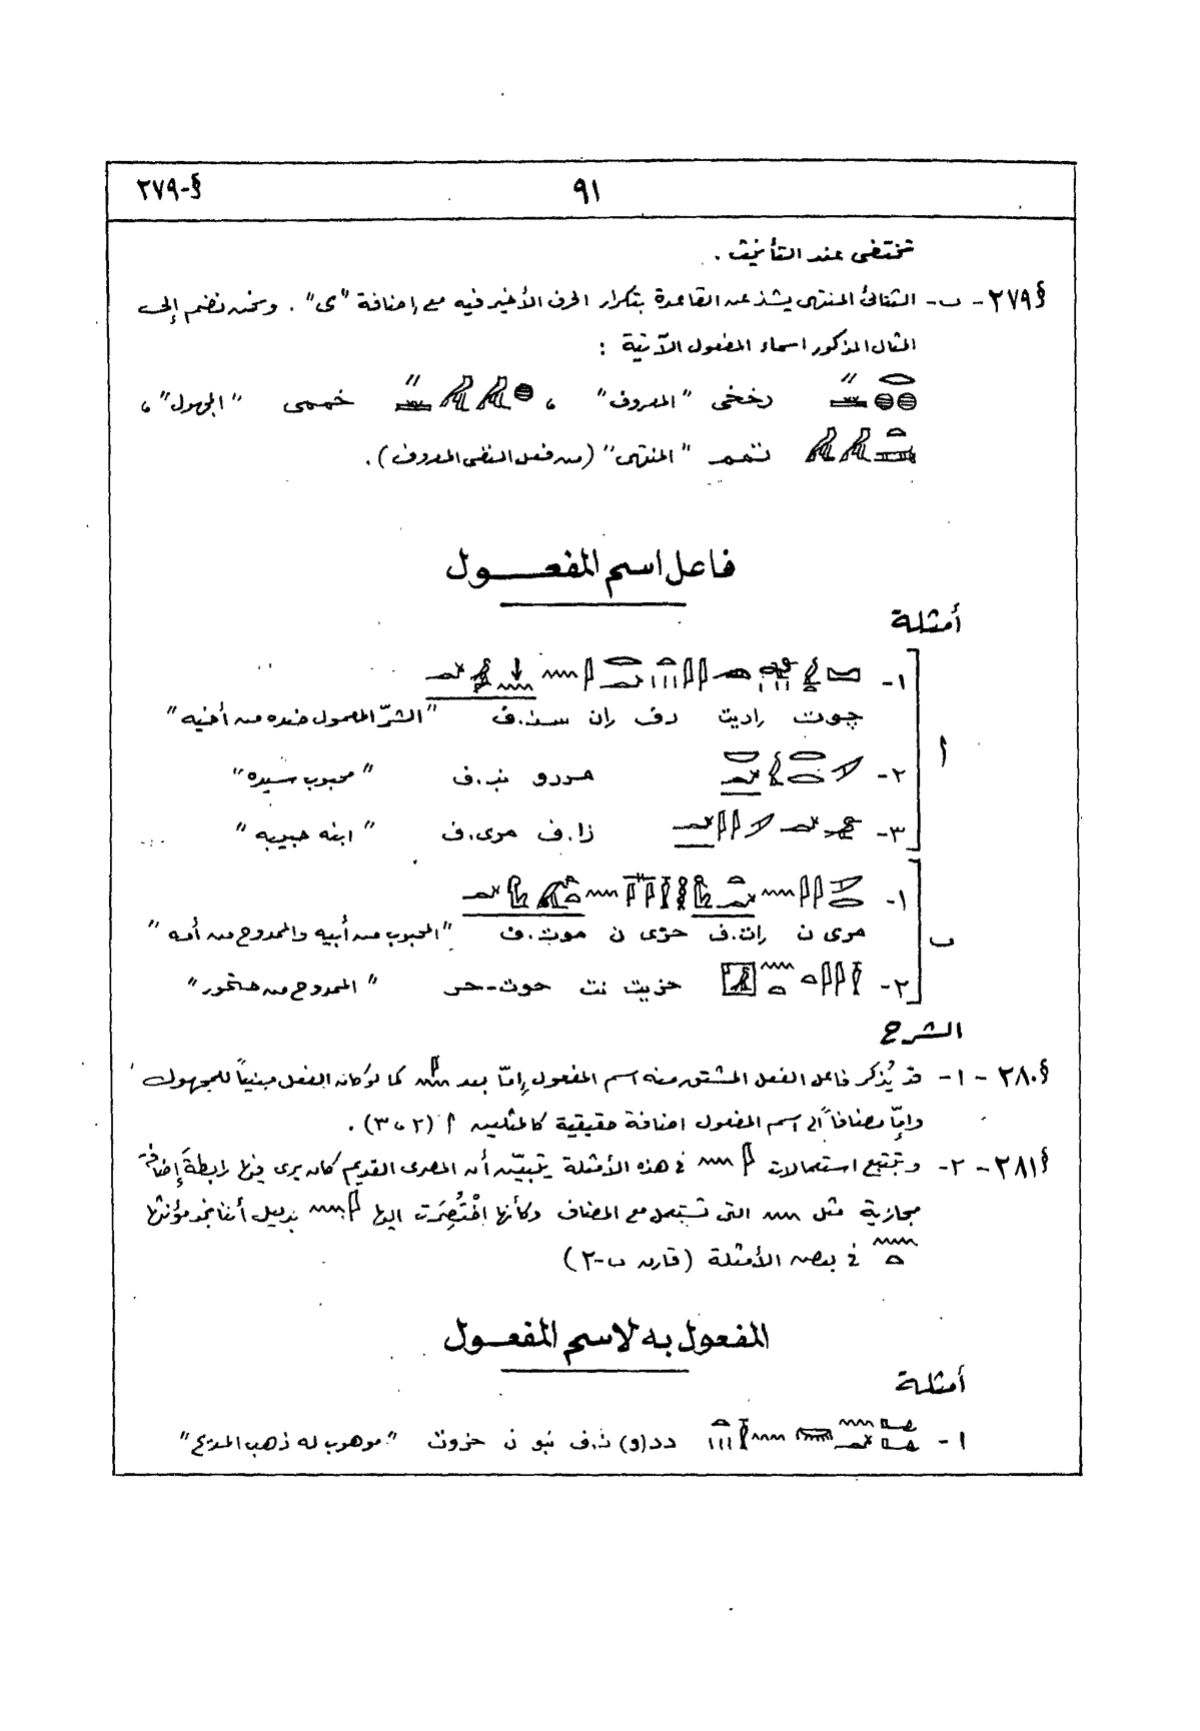 §-٢٧٩
٩١
تختفى عند التأنيث .
§٢٧٩ - ب - الثنائى المنتهى يشذ عن القاعدة بتكرار الحرف الأخير فيه مع إضافة "ى" . ونحن نضم إلى
المثال المذكور اسماء المفعول الآتية :
رخخى "المعروف" ، خممى "المجهول" ،
تمم "المنتهى" (من فعل النفى المعروف) .
فاعل اسم المفعـــول
أمثلة
أ
١-
چوت راديت رف ران سن.ف "الشرّ المعمول ضده من أخيه"
٢- مررو نب.ف "محبوب سيده"
٣- زا.ف مرى.ف "ابنه حبيبه"
ب
١-
مرى ن رات.ف حزى ن موت.ف "المحبوب من أبيه والممدوح من أمه"
٢- حزيت نت حوت-حر "الممدوح من هتحور"
الشرح
§٢٨٠ - ١- قد يُذكر فاعل الفعل المشتق منه اسم المفعول إمّا بعد كما لو كان الفعل مبنياً للمجهول
وإمّا مضافاً الى اسم المفعول اضافة حقيقية كالمثلين أ (٢ ، ٣) .
§٢٨١ - ٢- وبتتبع استعمالات فى هذه الأمثلة يتبيّن أن المصرى القديم كان يرى فيها رابطة إضافة
مجازية مثل التى تستعمل مع المضاف وكأنها اخْتُصِرَت اليها بدليل أننا نجد مؤنثها
فى بعض الأمثلة (قارن ب-٢)
المفعول به لاسم المفعــول
أمثلة
١- دد(و) ن.ف نبو ن حزوت "موهوب له ذهب المديح"